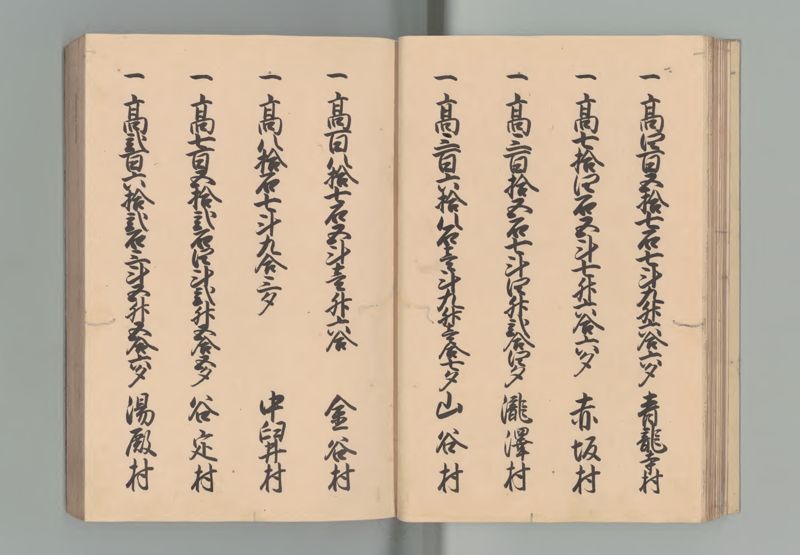 一 高四百五拾七石七斗九升六合六夕 青龍寺村
一 高七拾四石五斗七升六合六夕 赤坂村
一 高三百拾五石七斗四升弐合四夕 瀧澤村
一 高三百六拾八石壱斗九升壱合七夕 山谷村
一 高百八拾七石五斗壱升六合 金谷村
一 高八拾石七斗九合三夕 中臼井村
一 高七百五拾弐石四斗弐升五合五夕 谷定村
一 高弐百六拾弐石三斗五升五合六夕 湯殿村